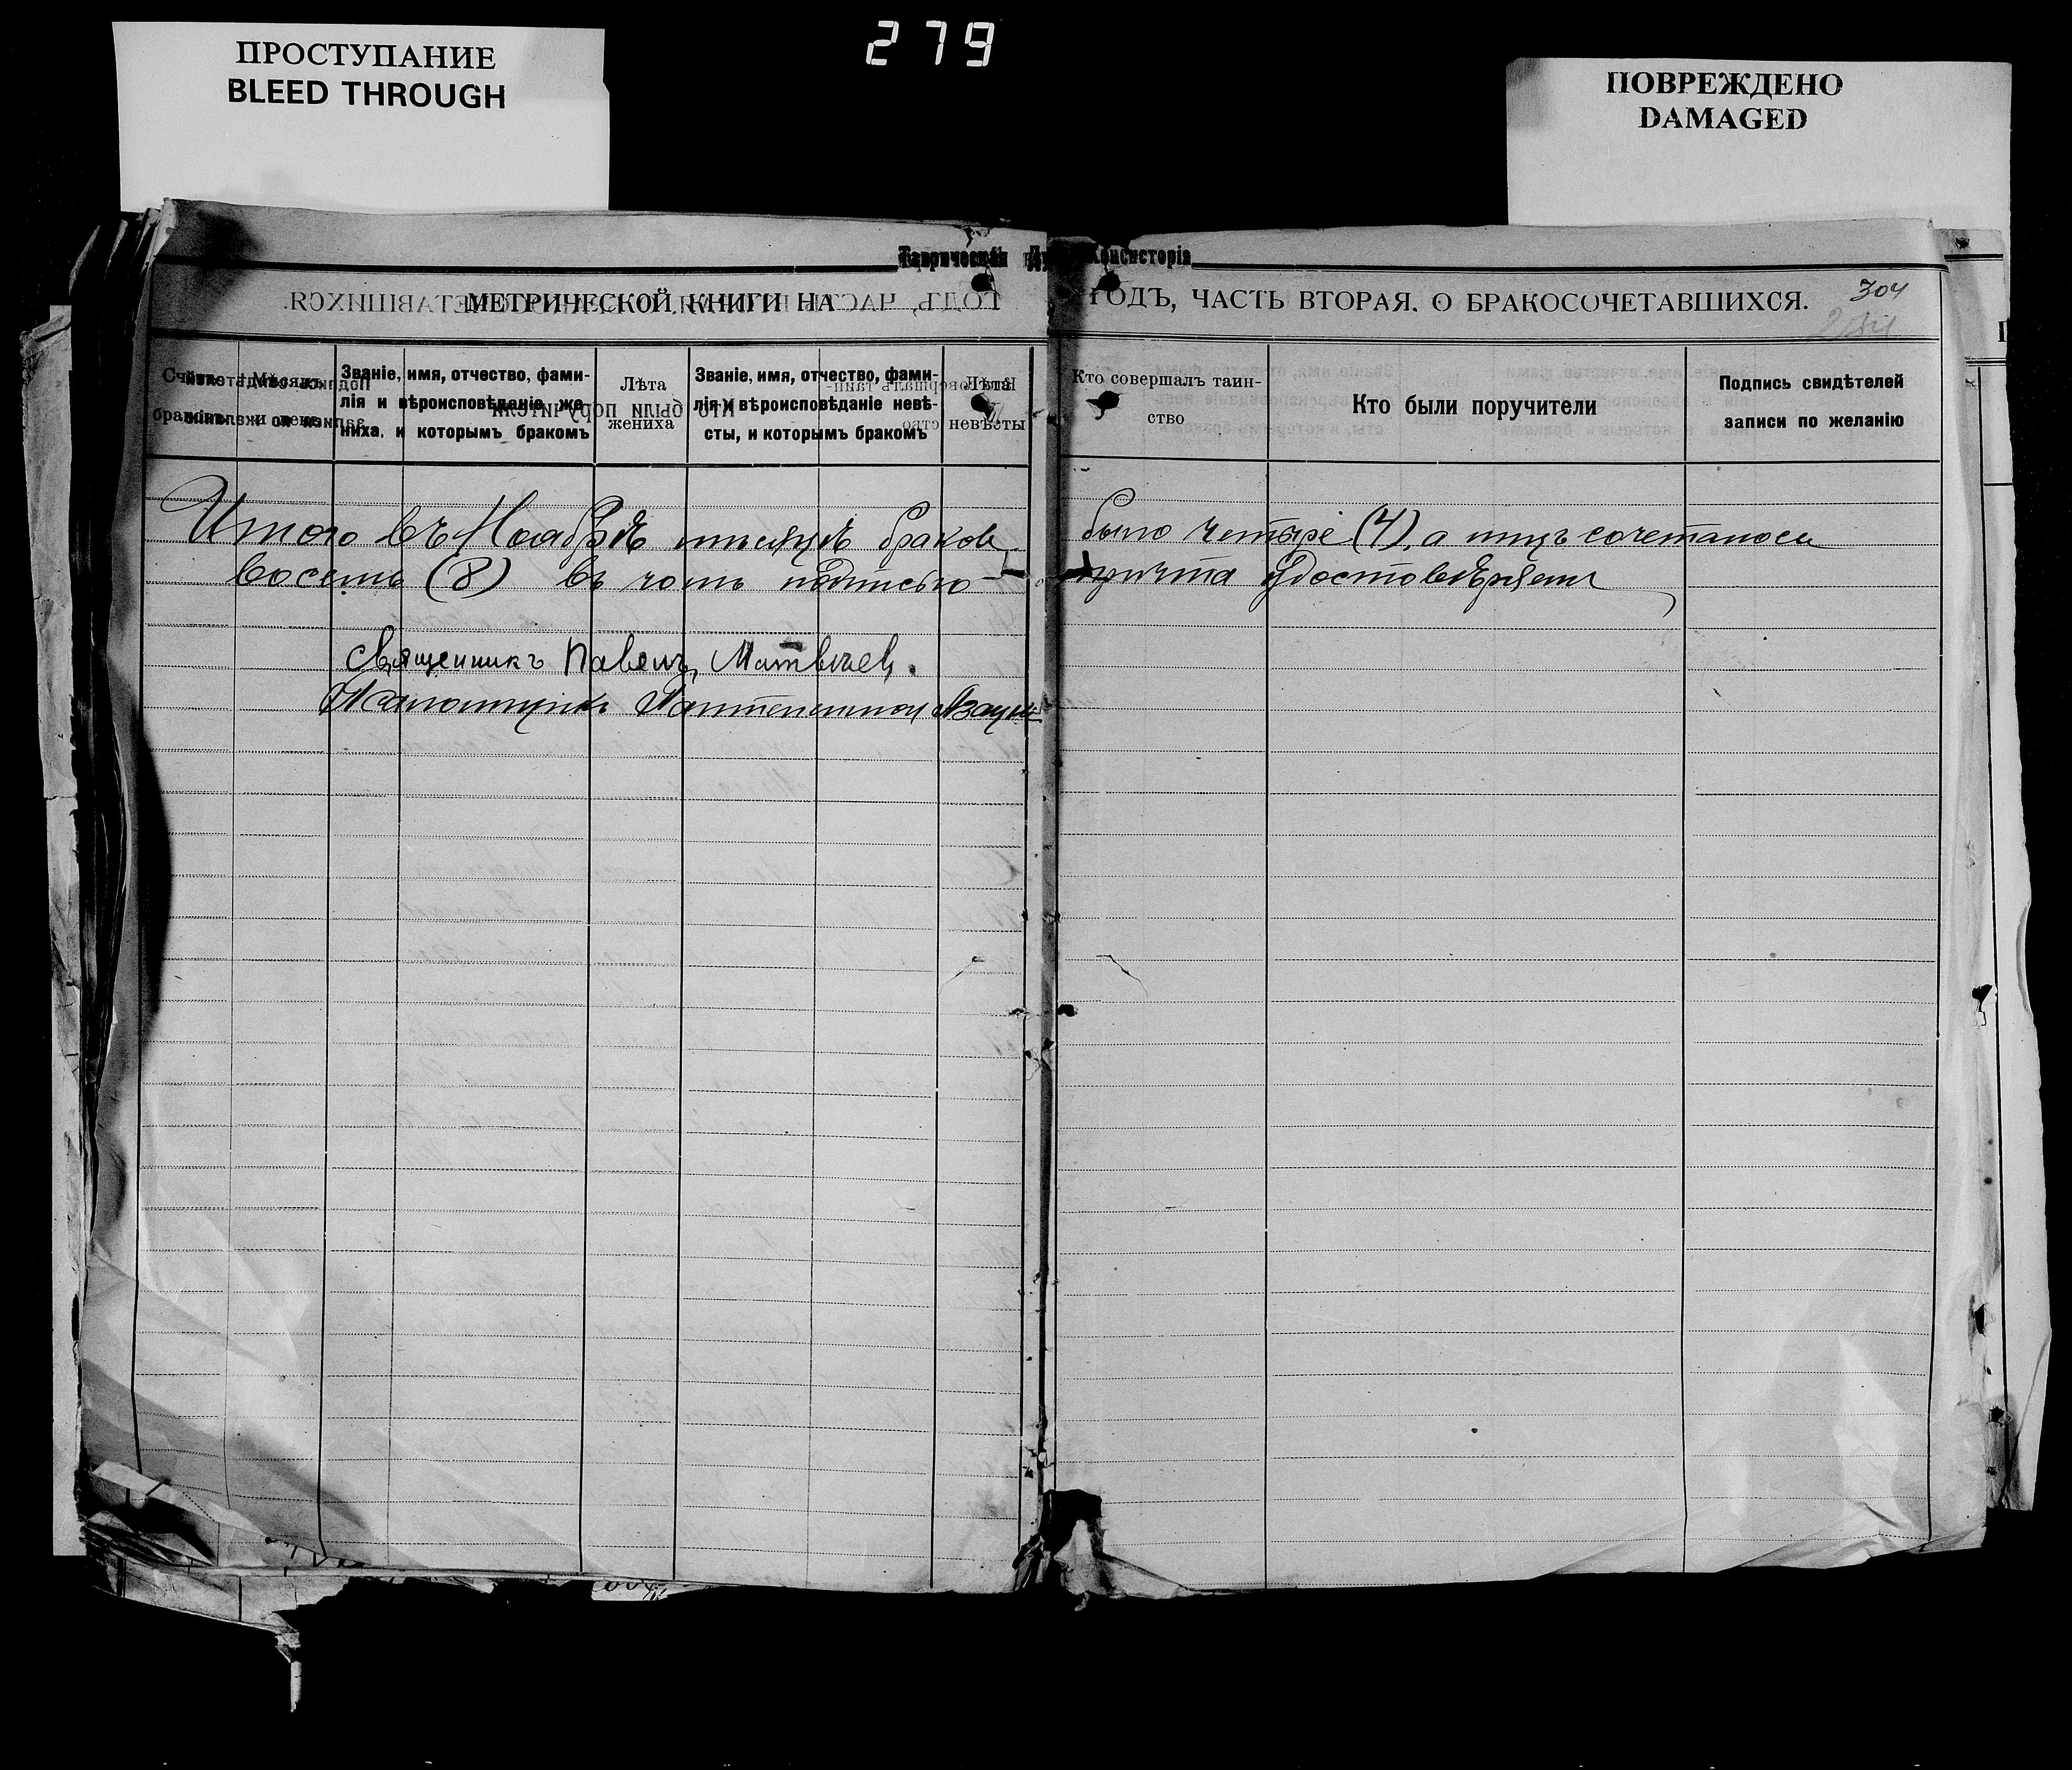 ПРОСТУПАНИЕ
BLEED THROUGH
279
ПОВРЕЖДЕНО
DAMAGED
Таврическая Консисторія
МЕТРИЧЕСКОЙ КНИГИ НА ГОДЪ, ЧАСТЬ ВТОРАЯ. О БРАКОСОЧЕТАВШИХСЯ.
304
Званіе, имя, отчество, фами-
лія и вѣроисповѣданіе же-
ниха, и которымъ бракомъ
Лѣта
жениха
Званіе, имя, отчество, фами-
лія и вѣроисповѣданіе невѣ-
сты, и которымъ бракомъ
Лѣта
невѣсты
Кто совершалъ таин-
ство
Кто были поручители
Подпись свидѣтелей
записи по желанію
Итого въ Ноябрѣ мѣсяцѣ браков было четыре (4), а лицъ сочеталось
восемь (8) въ чемъ подписью причта удостовѣряемъ
Священникъ Павелъ Матвѣевъ.
Псаломщикъ Пантелеимон